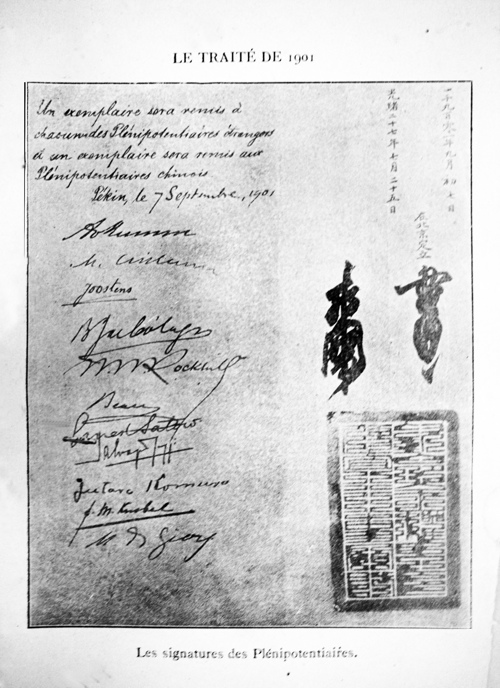 LE TRAITÉ DE 1901
Un exemplaire sera remis à
chacun des Plénipotentiaires étrangers
et un exemplaire sera remis aux
Plénipotentiaires chinois.
Pékin, le 7 Septembre, 1901
一千九百零一年九月初七日
在北京定立
光緒二十七年七月二十五日
Joostens
Rockhill
Beau
Ernest Satow
Jutaro Komura
F. M. Knobel
M de Giers
Les signatures des Plénipotentiaires.